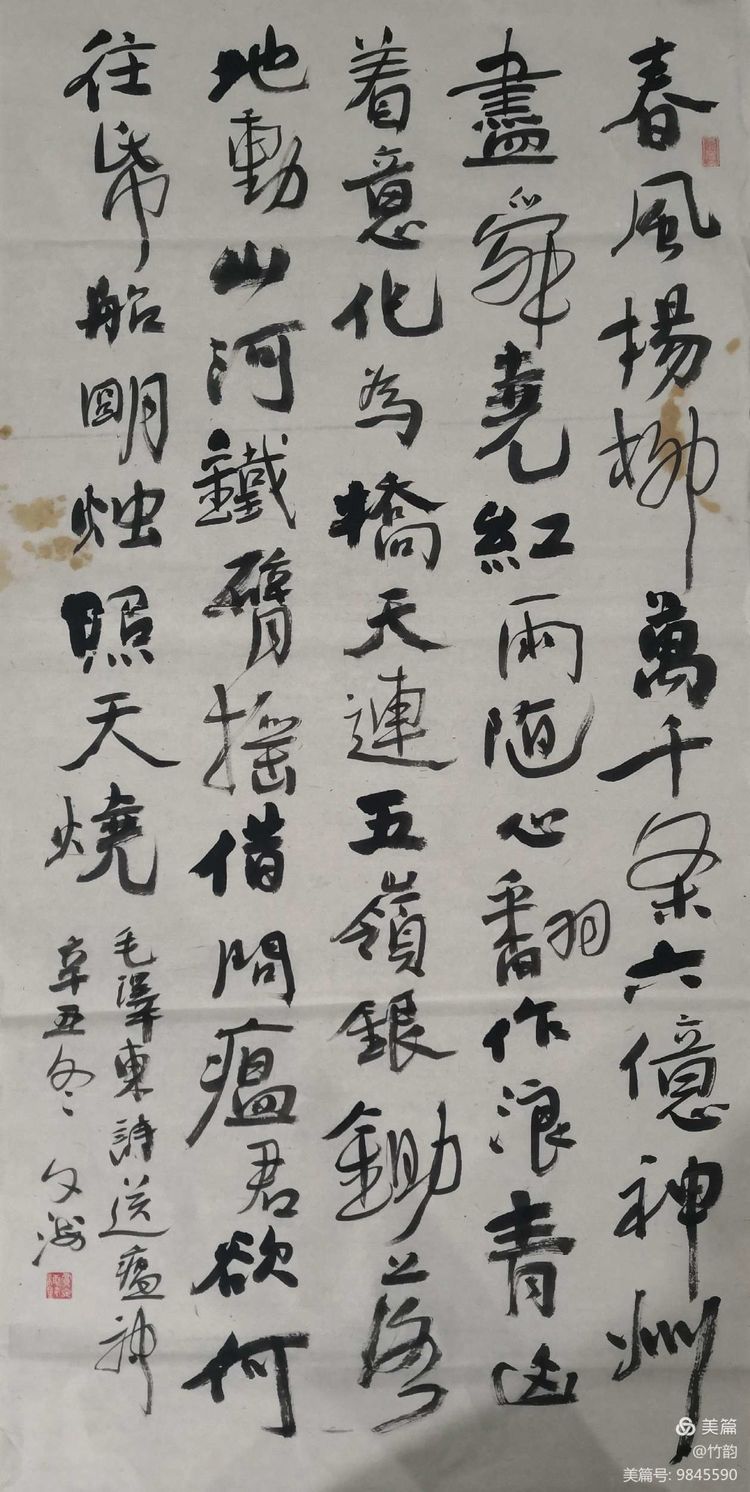 春風楊柳萬千条六億神州
盡舜堯紅雨随心翻作浪青山
着意化為橋天連五嶺銀鋤落
地動山河鐵臂摇借問瘟君欲何
往帋船明烛照天燒
毛澤東詩送瘟神
辛丑冬文
美篇
@竹韵
美篇号: 9845590